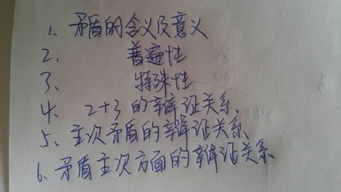 1. 矛盾的含义及意义
2. 普遍性
3. 特殊性
4. 2+3的辩证关系.
5. 主次矛盾的辩证关系
6. 矛盾主次方面的辩证关系